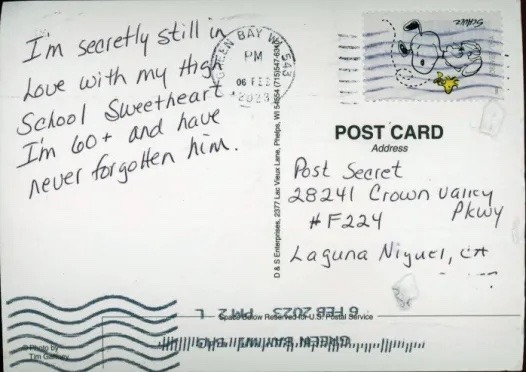 I'm secretly still in
Love with my High
School Sweetheart
I'm 60+ and have
never forgotten him.
GREEN BAY WI 543
PM
06 FEB
2023
Schulz
POST CARD
Address
Post Secret
28241 Crown Valley
Pkwy
#F224
Laguna Niguel, CA
D & S Enterprises, 2377 Lac Vieux Lane, Phelps, WI 54554 (715)547-6343
Space Below Reserved for U.S. Postal Service
6 FEB 2023 PM 2 L
GREEN BAY WI 543
© Photo by
Tim